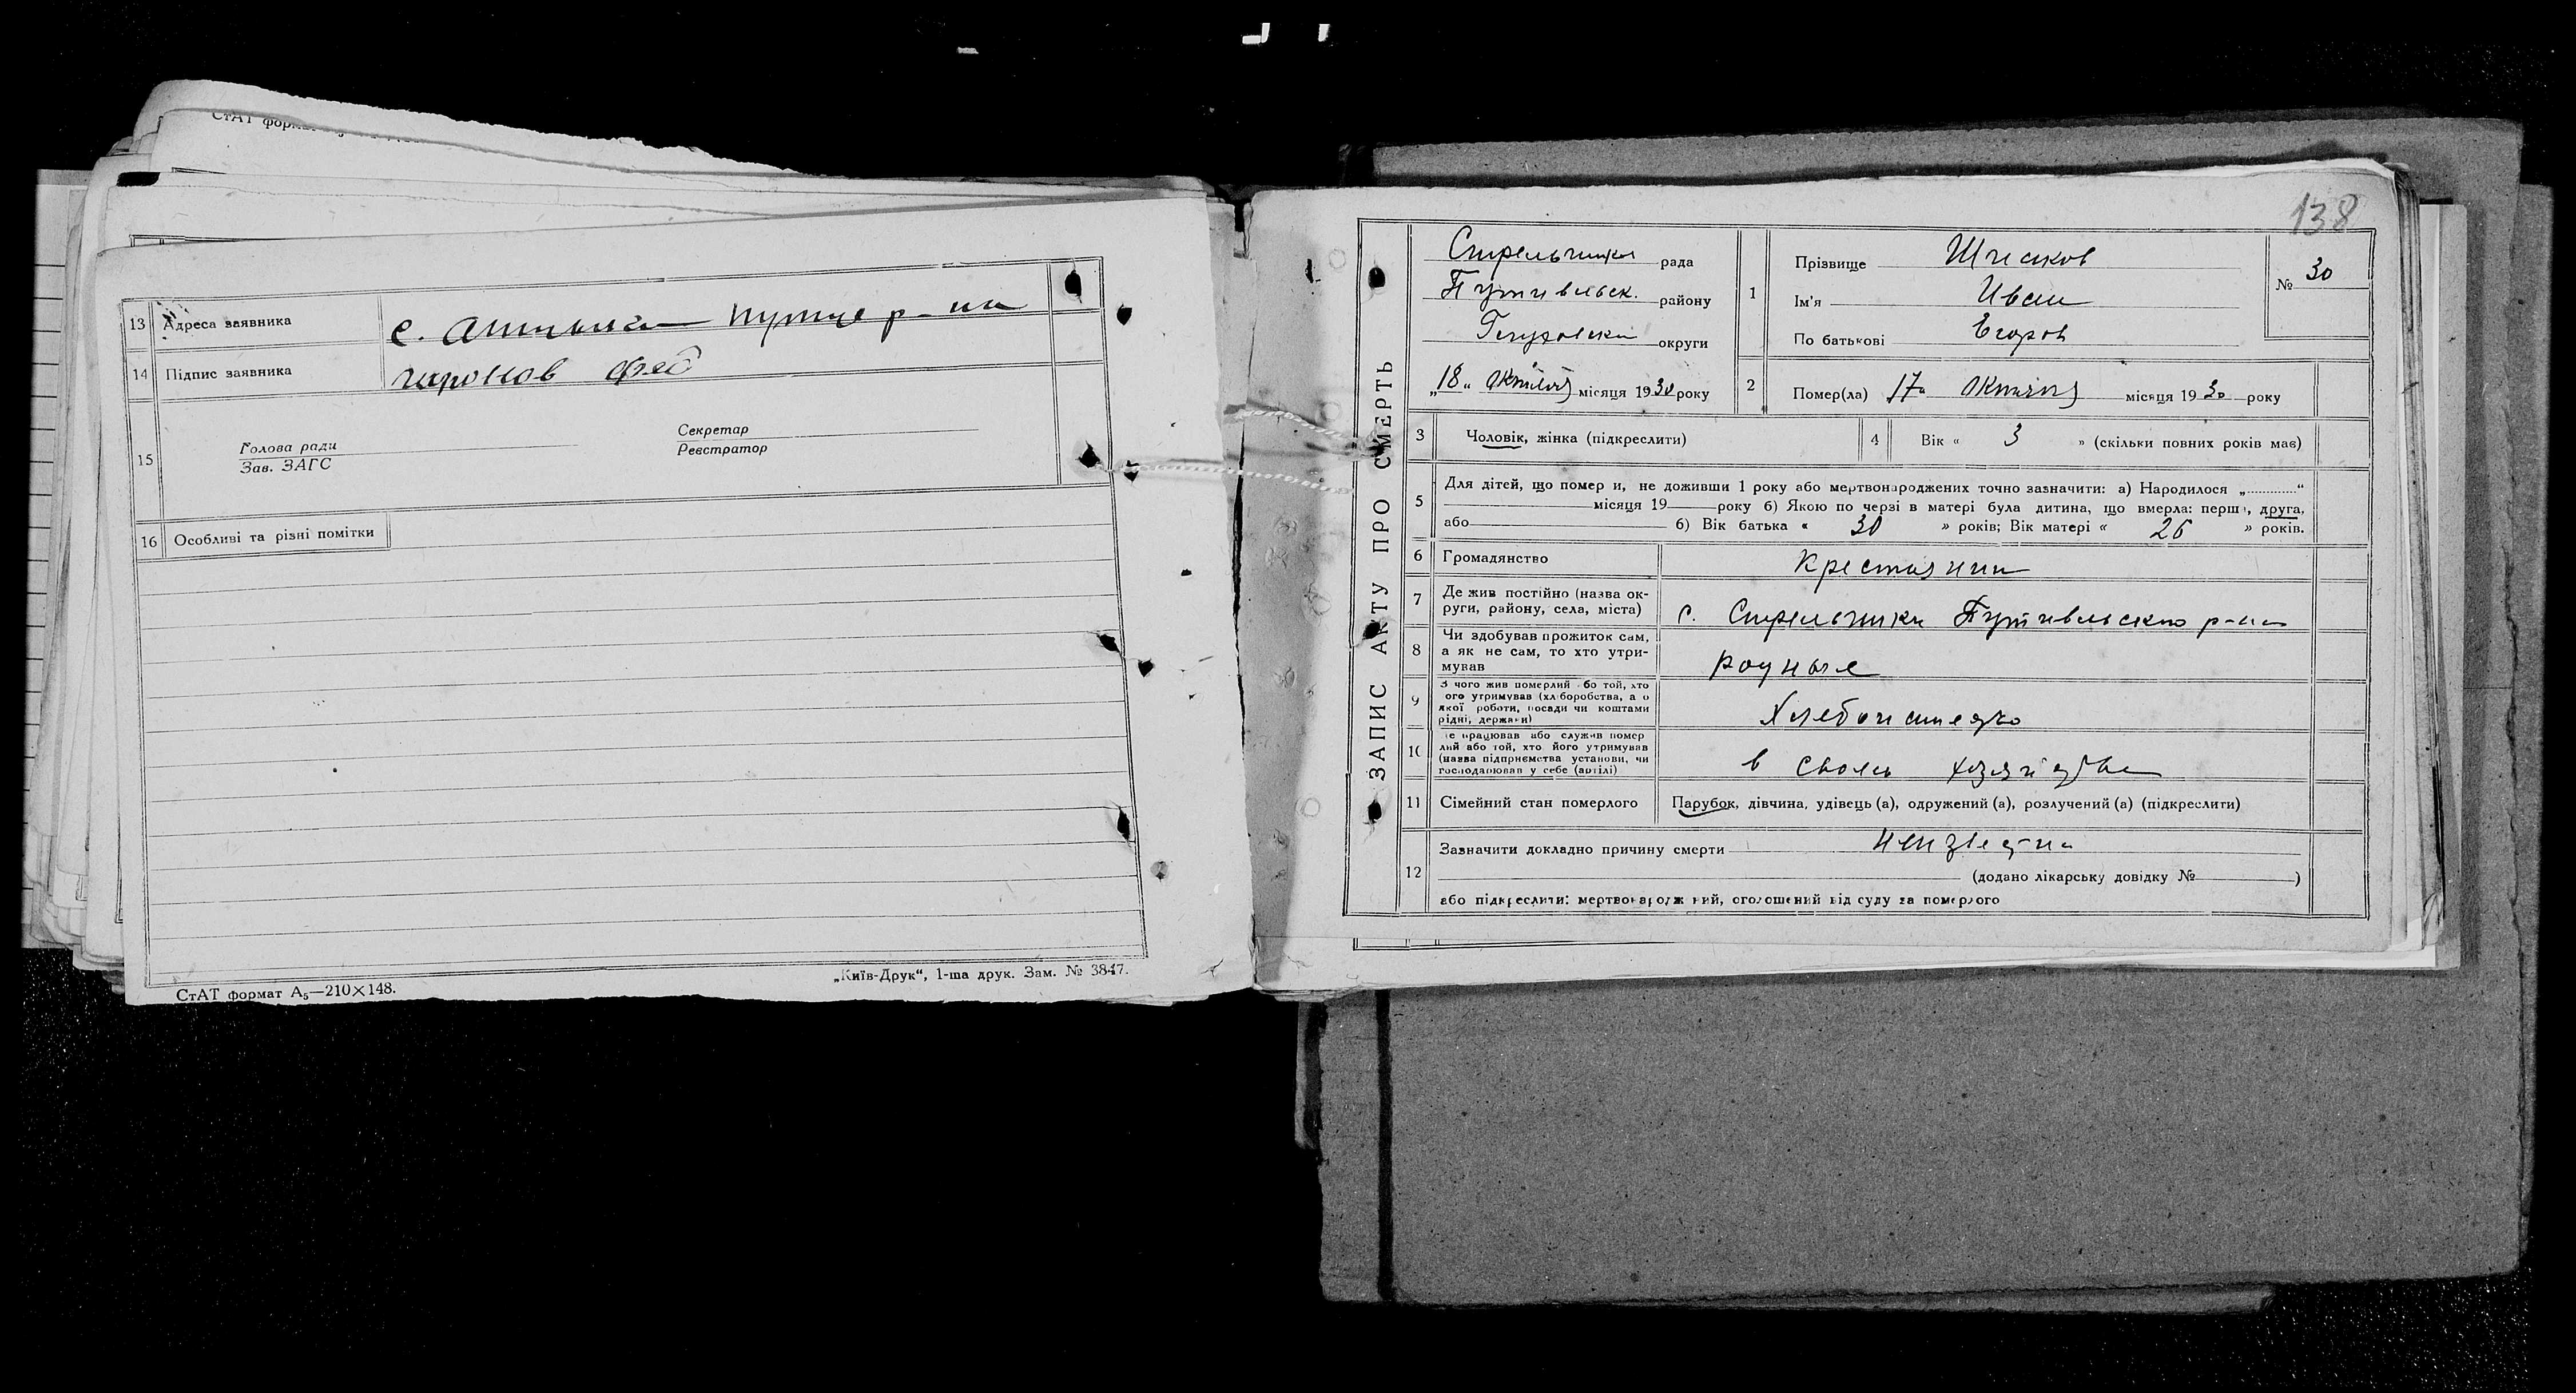 СтАТ форм
13 Адреса заявника с. р-на
14 Підпис заявника
15 Голова ради
Зав. ЗАГС
Секретар
Реєстратор
16 Особливі та різні помітки
СтАТ формат А5—210×148.
„Київ-Друк“, 1-ша друк. Зам. № 3847.
138
ЗАПИС АКТУ ПРО СМЕРТЬ
Стрельники рада
Путивльск. району
округи
„18„ Октября місяця 1930 року
1 Прізвище
Ім'я Иван
По батькові Егоров
№ 30
2 Помер(ла) 17го Октября місяця 1930 року
3 Чоловік, жінка (підкреслити)
4 Вік « 3 » (скільки повних років має)
5 Для дітей, що помер и, не доживши 1 року або мертвонароджених точно зазначити: а) Народилося „............“
місяця 19 року б) Якою по черзі в матері була дитина, що вмерла: перш , друга,
або б) Вік батька « 30 » років; Вік матері « 26 » років.
6 Громадянство Крестянин
7 Де жив постійно (назва округи, району, села, міста) с. Стрельники Путивльского р-на
8 Чи здобував прожиток сам,
а як не сам, то хто утримував родные
9 З чого жив померлий бо той, хто
ого утримував (хл боробства, а о
якої роботи, посади чи коштами
рідні, держави)
10 е працював або служив помер
лий або той, хто його утримував
(назва підприємства установи, чи
господарював у себе (артілі) в своем
11 Сімейний стан померлого Парубок, дівчина, удівець (а), одружений (а), розлучений (а) (підкреслити)
12 Зазначити докладно причину смерти
(додано лікарську довідку № )
або підкреслити: мертвонародж ний, оголошений від суду за померлого